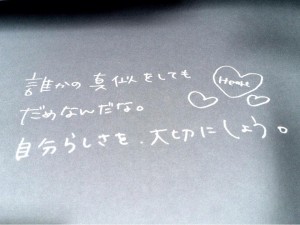 誰かの真似をしても
Heart
だめなんだな。
自分らしさを、大切にしよう。